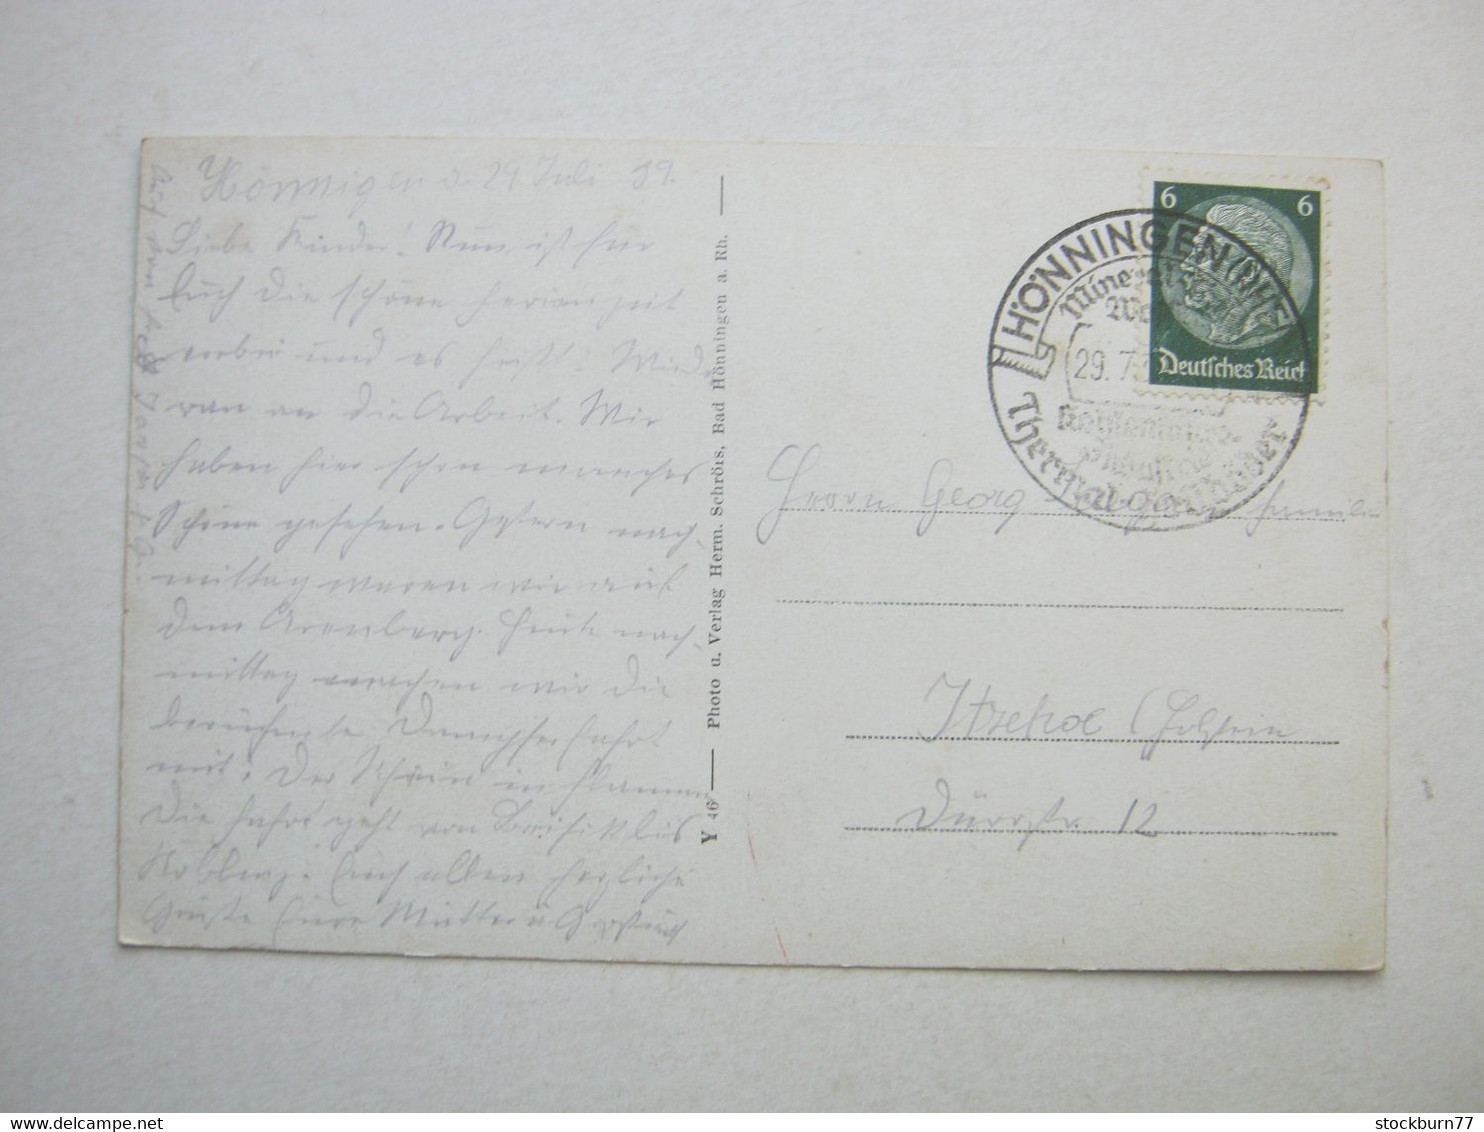 Hönnigen d. 29 Juli 39.
Liebe Kinder! Nun ist für
Euch die schöne Ferienzeit
vorbei und es heißt: Wieder
ran an die Arbeit. Wir
haben hier schon manches
Schöne gesehen. Gestern nach-
mittag waren wir auf
dem Arenberg. Heute nach-
mittag machen wir die
berühmte Dampferfahrt
mit: Der Rhein in Flammen
Die Fahrt geht von bis
Koblenz. Euch allen herzliche
Grüße Eure Mutter u.
Y 46 — Photo u. Verlag Herm. Schröis, Bad Hönningen a. Rh. —
6 6
Deutsches Reich
HÖNNINGEN (RHEIN)
29. 7.
Thermal
Herrn Georg Familie
Itzehoe (Holstein
Dürrstr. 12
stockburn77